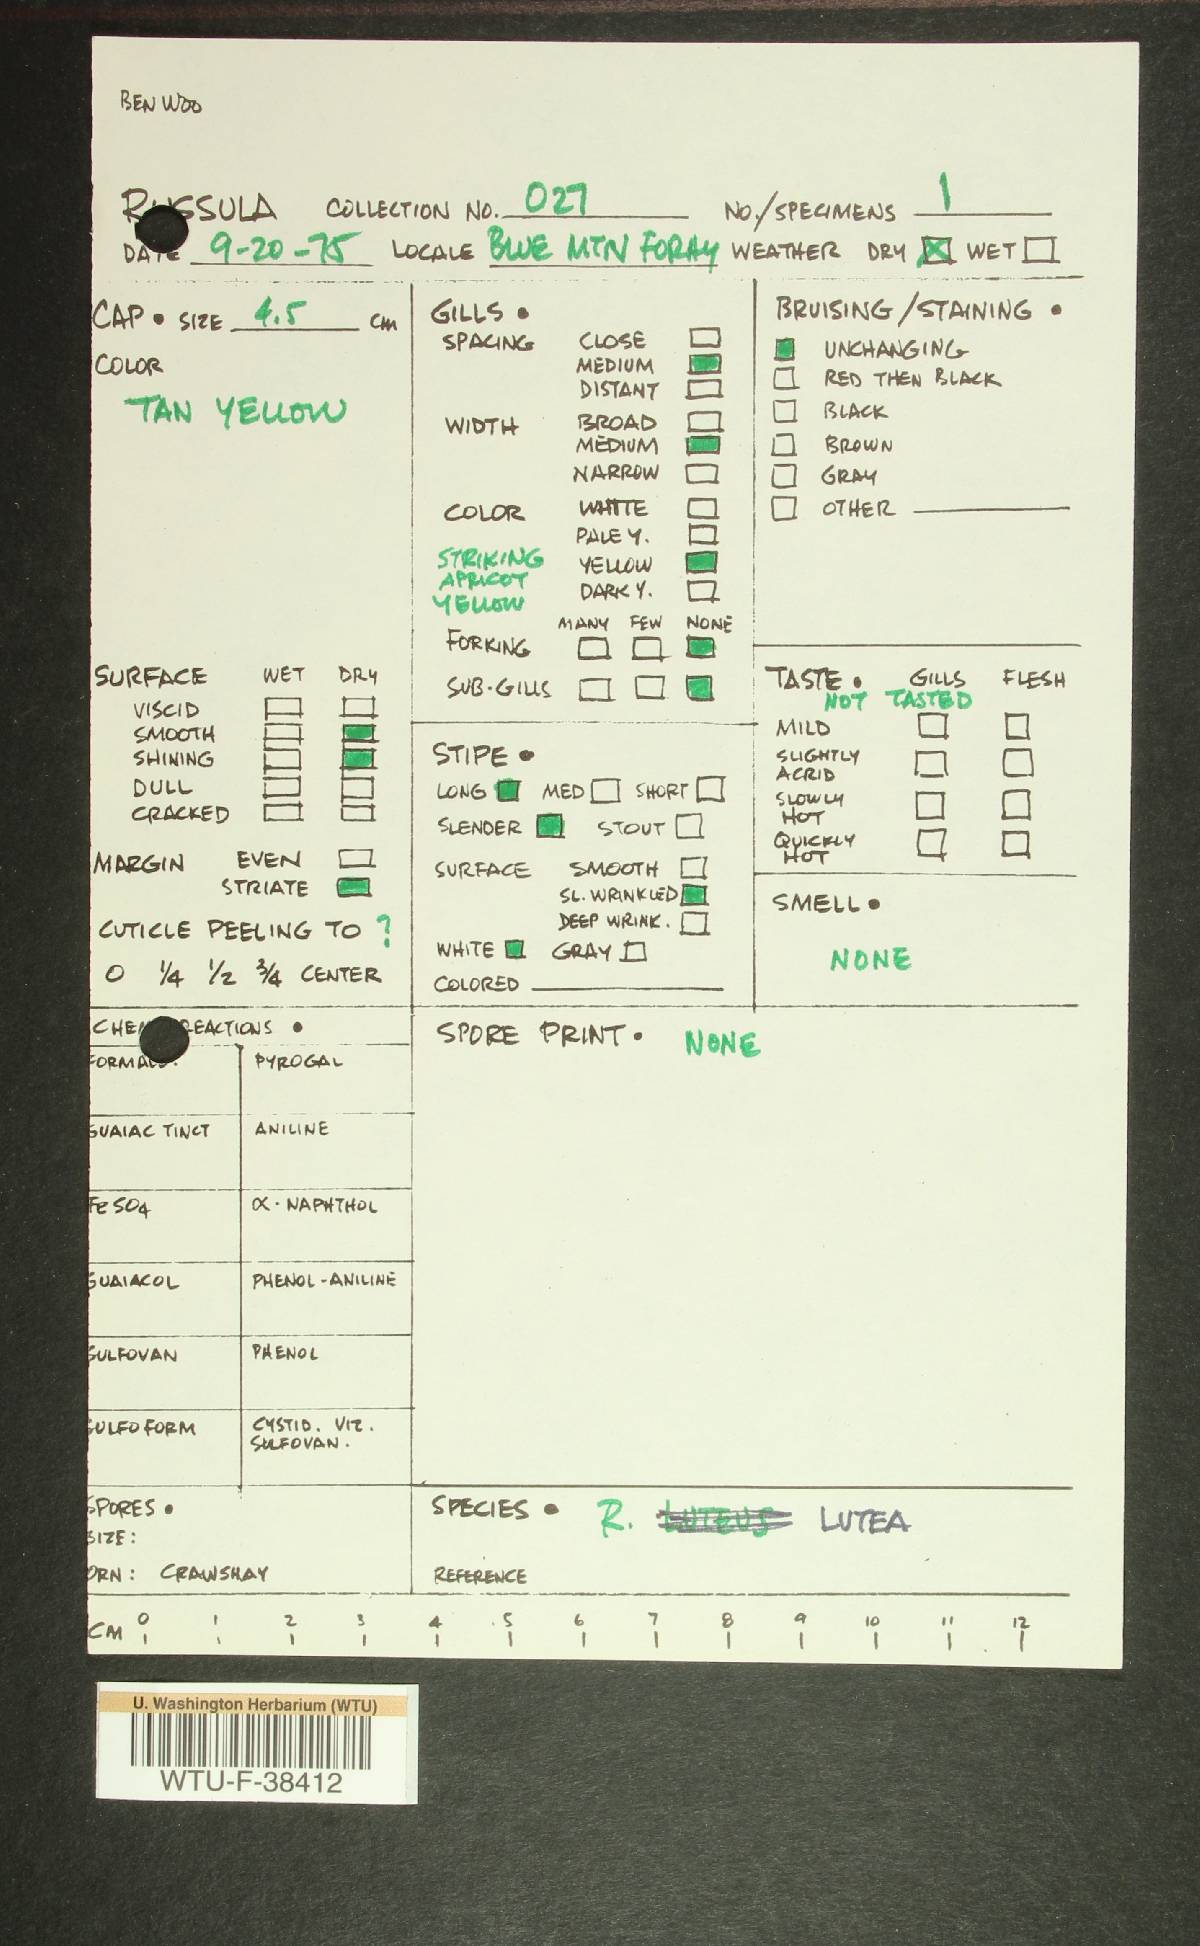 BEN WOO
RUSSULA COLLECTION NO. 027 NO./SPECIMENS 1
DATE 9-20-75 LOCALE BLUE MTN FORAY WEATHER DRY WET
CAP • SIZE 4.5 CM
COLOR
TAN YELLOW
SURFACE WET DRY
VISCID
SMOOTH
SHINING
DULL
CRACKED
MARGIN EVEN
STRIATE
CUTICLE PEELING TO ?
0 1/4 1/2 3/4 CENTER
GILLS •
SPACING CLOSE
MEDIUM
DISTANT
WIDTH BROAD
MEDIUM
NARROW
COLOR WHITE
PALE Y.
STRIKING YELLOW
APRICOT DARK Y.
YELLOW
MANY FEW NONE
FORKING
SUB-GILLS
STIPE •
LONG MED SHORT
SLENDER STOUT
SURFACE SMOOTH
SL. WRINKLED
DEEP WRINK.
WHITE GRAY
COLORED
BRUISING/STAINING •
UNCHANGING
RED THEN BLACK
BLACK
BROWN
GRAY
OTHER
TASTE • GILLS FLESH
NOT TASTED
MILD
SLIGHTLY
ACRID
SLOWLY
HOT
QUICKLY
HOT
SMELL •
NONE
REACTIONS •
PYROGAL
GUAIAC TINCT ANILINE
FeSO4 α-NAPHTHOL
GUAIACOL PHENOL-ANILINE
SULFOVAN PHENOL
SULFOFORM CYSTID. VIZ.
SULFOVAN.
SPORE PRINT • NONE
SPORES •
SIZE:
ORN: CRAWSHAY
SPECIES • R. LUTEUS LUTEA
REFERENCE
CM 0 1 2 3 4 5 6 7 8 9 10 11 12
U. Washington Herbarium (WTU)
WTU-F-38412